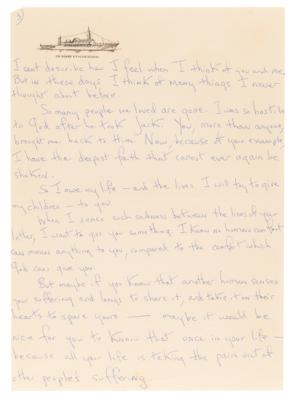 3
I can't describe how I feel when I think of you and me.
But in these days I think of many things I never
thought about before.
So many people we loved are gone. I was so hostile
to God after he took Jack. You, more than anyone,
brought me back to Him. Now, because of your example,
I have the deepest faith that cannot ever again be
shaken.
So I owe my life - and the lives I will try to give
my children - to you.
When I sense such sadness between the lines of your
letter, I want to give you something. I know no human comfort
can mean anything to you, compared to the comfort which
God can give you.
But maybe if you know that another human senses
you suffering and longs to share it, and take it on their
hearts to spare yours — maybe it would be
nice for you to know that once in your life -
because all your life is taking the pain out of
other people's suffering